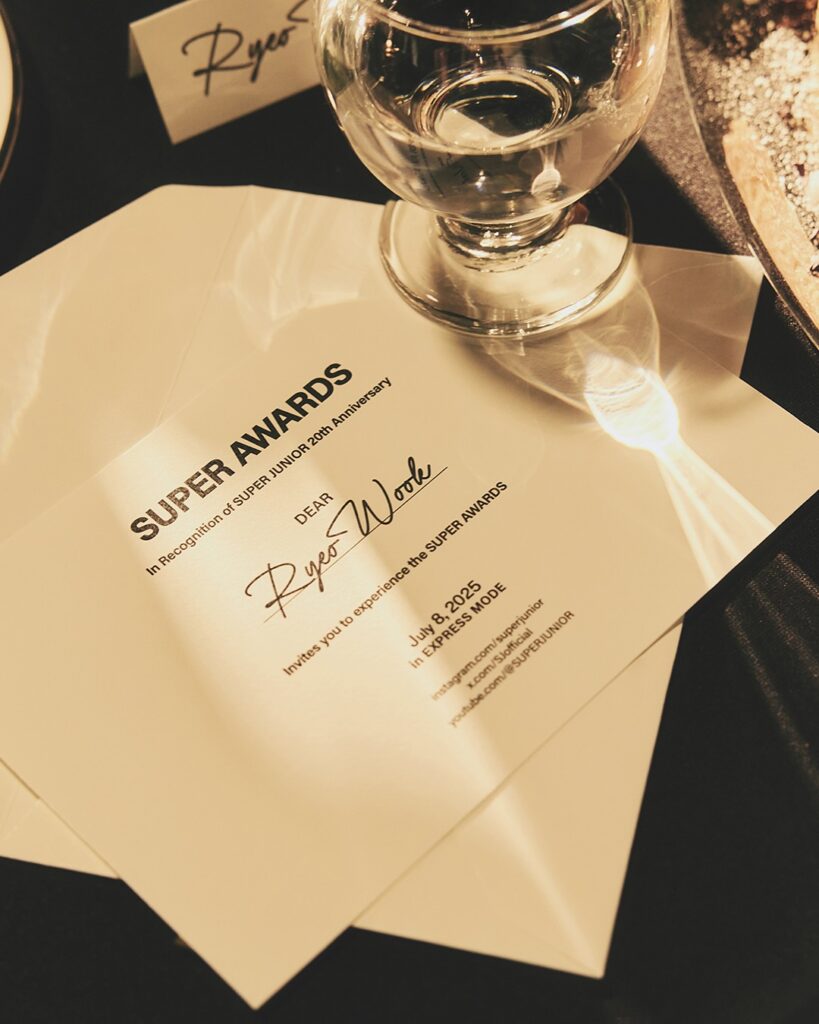 Ryeo
SUPER AWARDS
In Recognition of SUPER JUNIOR 20th Anniversary
DEAR
Ryeo Wook
Invites you to experience the SUPER AWARDS
July 8, 2025
In EXPRESS MODE
instagram.com/superjunior
x.com/SJofficial
youtube.com/@SUPERJUNIOR